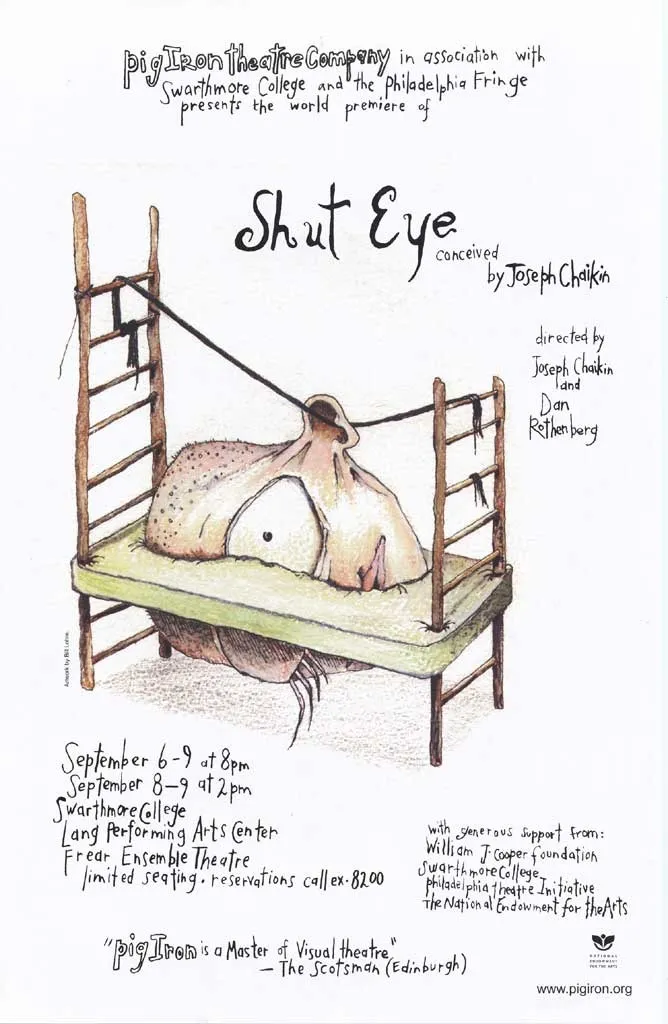 pig Iron theatre Company in association with
Swarthmore College and the Philadelphia Fringe
presents the world premiere of
Shut Eye
conceived
by Joseph Chaikin
directed by
Joseph Chaikin
and
Dan
Rothenberg
Artwork by Bill Lohre.
September 6-9 at 8pm
September 8-9 at 2pm
Swarthmore College
Lang Performing Arts Center
Frear Ensemble Theatre
limited seating. reservations call ex. 8200
with generous support from:
William J Cooper foundation
Swarthmore College
philadelphia theatre Initiative
The National Endowment for the Arts
"pig Iron is a Master of Visual theatre,"
— The Scotsman (Edinburgh)
NATIONAL
ENDOWMENT
FOR THE ARTS
www.pigiron.org